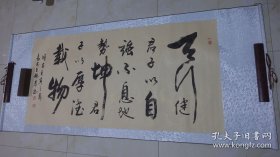 天行健
君子以自
强不息地
勢坤君
子以厚德
載物